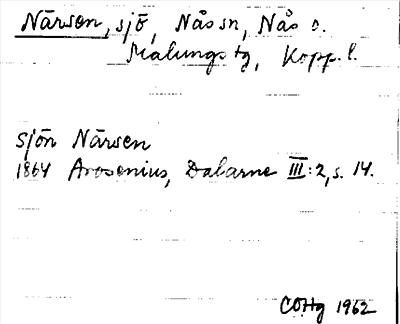 Närsen, sjö, Nås sn, Nås o.
Malungs tg, Kopp. l.
sjön Närsen
1864 Arosenius, Dalarne III:2, s. 14.
COHg 1962